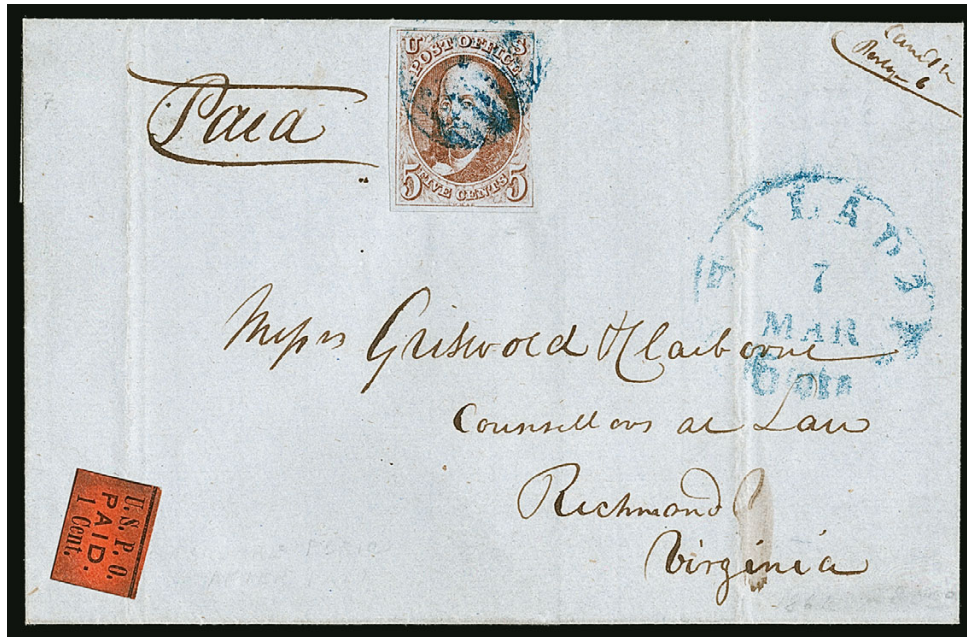 Paid
U S
POST OFFICE
5 FIVE CENTS 5
6
7
MAR
5 cts
Messrs Griswold & Claiborne
Counsellors at Law
Richmond
Virginia
U.S.P.O.
PAID.
1 Cent.